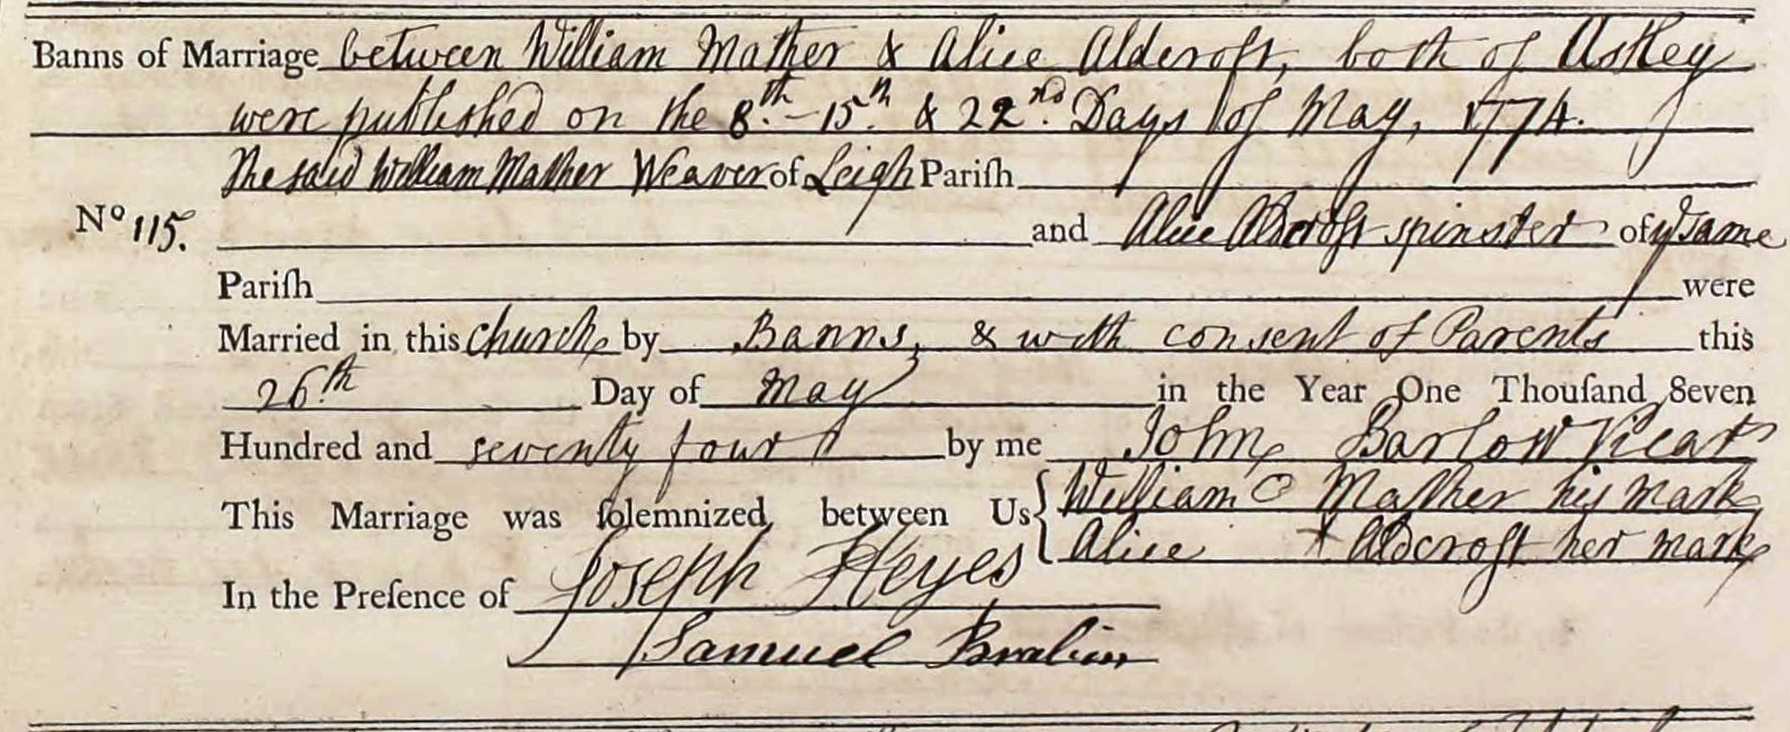 Banns of Marriage between William Mather & Alice Aldcroft, both of Astley
were published on the 8th. – 15th. & 22nd. Days of May, 1774.
The said William Mather Weaver of Leigh Pariſh
No 115. and Alice Aldcroft spinster of ye same
Pariſh were
Married in this Church by Banns, & with consent of Parents this
26th Day of May in the Year One Thouſand Seven
Hundred and seventy four by me John Barlow Vicar
This Marriage was ſolemnized between Us William O Mather his mark
Alice + Aldcroft her mark
In the Preſence of Joseph Heyes
Samuel Brabin